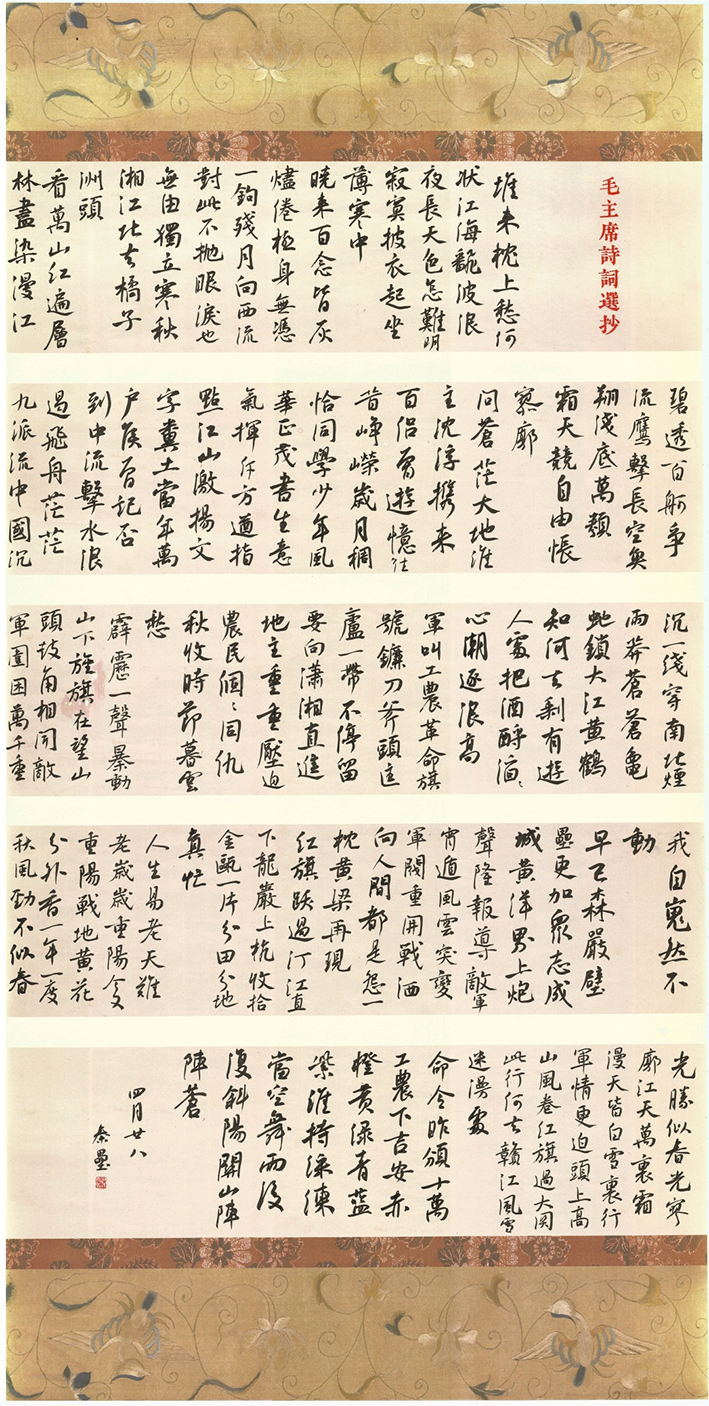 毛主席詩詞選抄
堆来枕上愁何
状江海翻波浪
夜長天色怎難明
寂寞披衣起坐
薄寒中
曉来百念皆灰
燼倦極身無憑
一鉤殘月向西流
對此不抛眼淚也
無由獨立寒秋
湘江北去橘子
洲頭
看萬山红遍層
林盡染漫江
碧透百舸爭
流鷹擊長空魚
翔淺底萬類
霜天競自由悵
寥廓
問蒼茫大地誰
主沈浮攜来
百侣曾遊憶往
昔崢嶸歲月稠
恰同學少年風
華正茂書生意
氣揮斥方遒指
點江山激揚文
字糞土當年萬
户侯曾記否
到中流擊水浪
遏飛舟茫茫
九派流中國沉
沉一綫穿南北煙
雨莽蒼蒼龜
蛇鎖大江黄鶴
知何去剩有遊
人處把酒酹滔〻
心潮逐浪高
軍叫工農革命旗
號鐮刀斧頭匡
廬一帶不停留
要向瀟湘直進
地主重重壓迫
農民個〻同仇
秋收時節暮雲
愁
霹靂一聲暴動
山下旌旗在望山
頭鼓角相聞敵
軍圍困萬千重
我自嵬然不
動
早已森嚴壁
壘更加衆志成
城黄洋界上炮
聲隆報導敵軍
宵遁風雲突變
軍閥重開戰洒
向人間都是怨一
枕黄粱再現
红旗跃過汀江直
下龍巖上杭收拾
金甌一片分田分地
真忙
人生易老天難
老歲歲重陽今又
重陽戰地黄花
分外香一年一度
秋風勁不似春
光勝似春光寥
廓江天萬裏霜
漫天皆白雪裏行
軍情更迫頭上高
山風卷红旗過大関
此行何去贛江風雪
迷漫處
命令昨頒十萬
工農下吉安赤
橙黄绿青藍
紫誰持綵練
當空舞雨後
復斜陽關山陣
陣蒼
四月廿八
秦壘